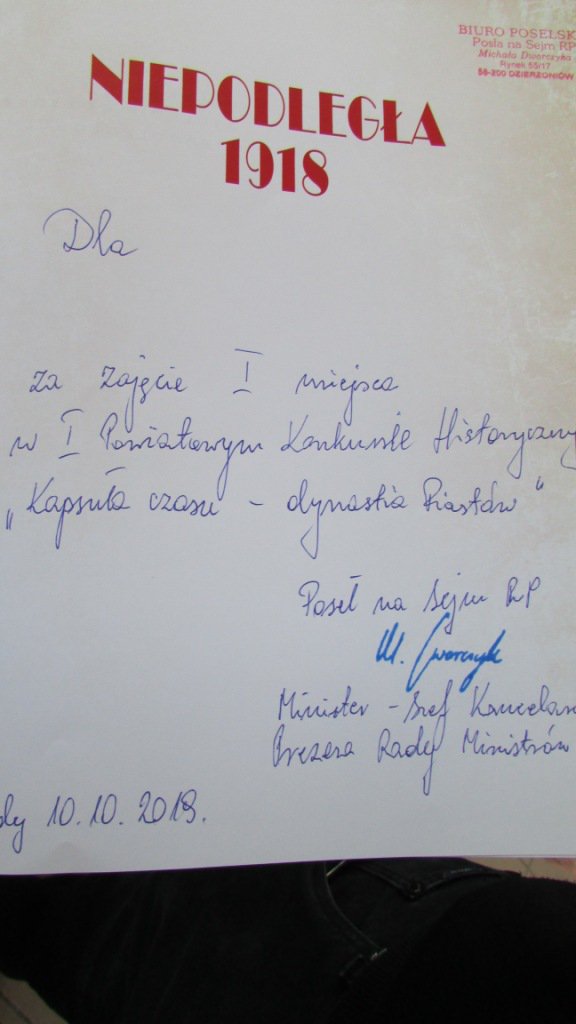 BIURO POSELSK
Posła na Sejm RP
Michała Dworczyka
Rynek 55/17
58-200 DZIERŻONIÓW
NIEPODLEGŁA
1918
Dla
za zajęcie I miejsca
w I Powiatowym Konkursie Historyczny
„Kapsuła czasu - dynastia Piastów"
Poseł na Sejm RP
M. Dworczyk
Minister - Szef Kancelar
Prezesa Rady Ministrów
dy 10.10.2018.